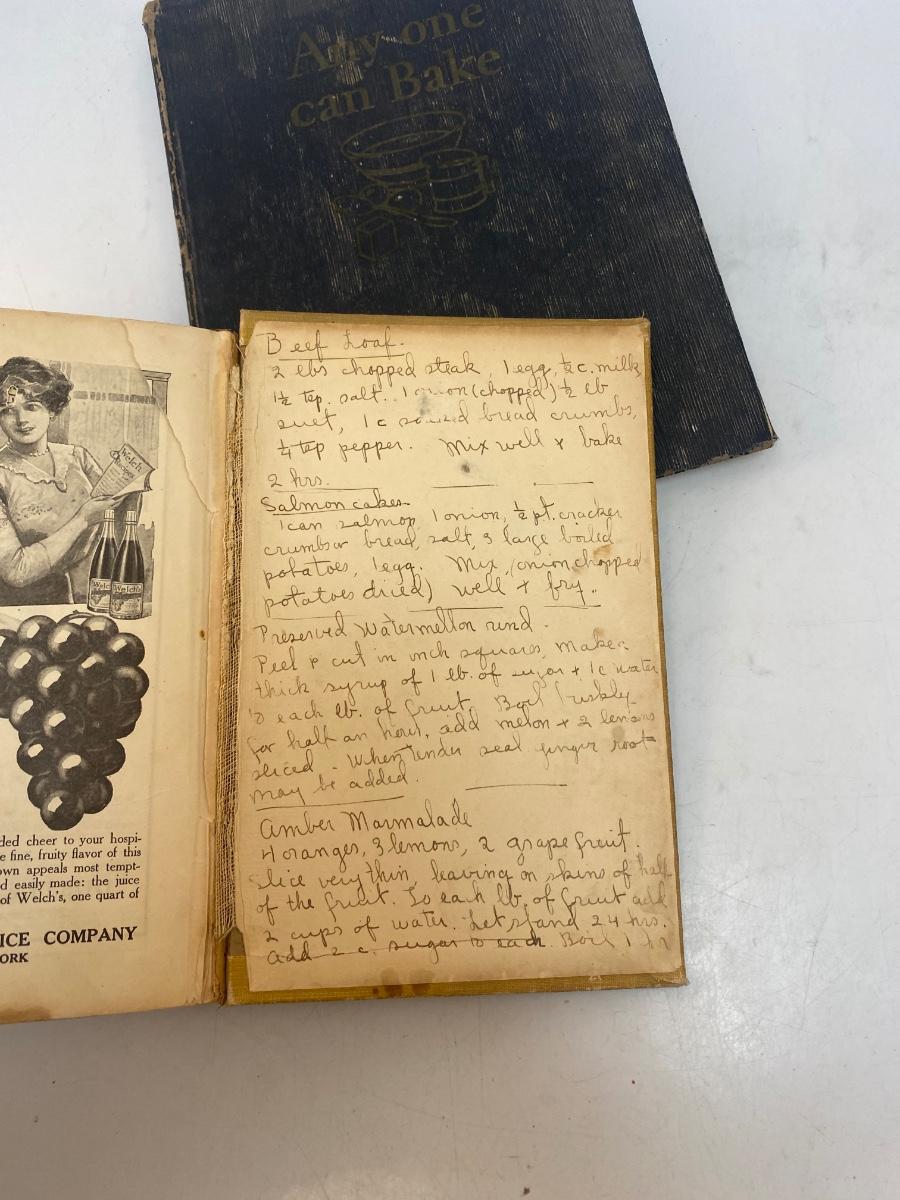 Any one
can Bake
Welch
Recipes
Welch's
Welch's
ded cheer to your hospi-
e fine, fruity flavor of this
own appeals most tempt-
d easily made: the juice
of Welch's, one quart of
ICE COMPANY
ORK
Beef Loaf.
2 lbs chopped steak, 1 egg, ½ c. milk
1½ tsp. salt. 1 onion (chopped) ½ lb
suet, 1 c bread crumbs,
¼ tsp pepper. Mix well & bake
2 hrs.
Salmon cakes
1 can salmon, 1 onion, ½ pt. cracker
crumbs or bread, salt, 3 large boiled
potatoes, 1 egg. Mix, (onion, chopped
potatoes diced) well + fry.
Preserved Watermellon rind.
Peel & cut in inch squares, make
thick syrup of 1 lb. of sugar + 1 c water
to each lb. of fruit. Boil briskly
for half an hour, add melon + 2 lemons
sliced - When tender seal ginger root
may be added.
Amber Marmalade
4 oranges, 3 lemons, 2 grape fruit.
Slice very thin, leaving on skins of half
of the fruit. To each lb. of fruit add
2 cups of water. Let stand 24 hrs.
add 2 c. sugar to each. Boil 1 hr